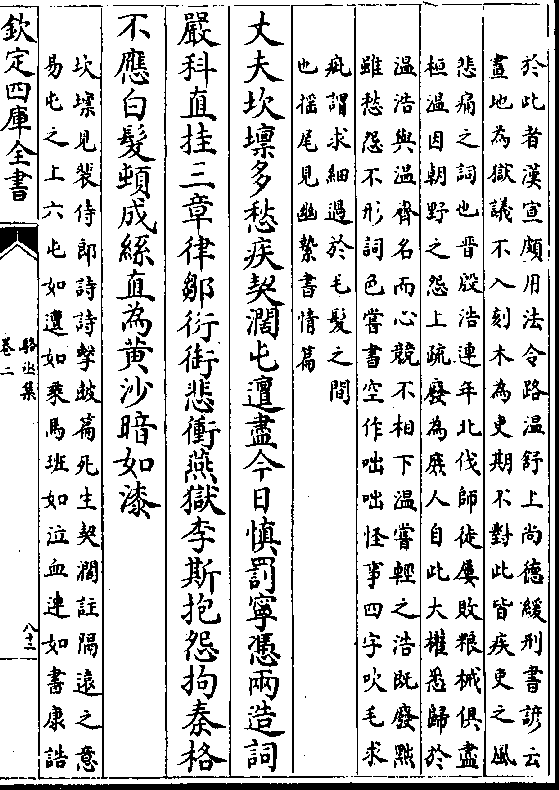 於此者漢宣頗用法令路温舒上尚德緩刑書諺云
畫地為獄議不入刻木為吏期不對此皆疾吏之風
悲痛之詞也晋殷浩連年北伐師徒屢敗粮械俱盡
桓温因朝野之怨上疏廢為庶人自此大權悉歸於
温浩與温齊名而心競不相下温嘗輕之浩既廢黜
雖愁怨不形詞色嘗書空作咄咄怪事四字吹毛求
疵謂求細過於毛髮之間
也揺尾見幽縶書情篇
丈夫坎壈多愁疾契濶屯邅盡今日慎罰寧憑兩造詞
嚴科直挂三章律鄒衍銜悲衝燕獄李斯抱怨拘秦格
不應白髮頓成絲直為黄沙暗如漆
坎壈見裴侍郎詩詩擊皷篇死生契濶註隔遠之意
易屯之上六屯如邅如乘馬班如泣血連如書康誥
欽定四庫全書
駱丞集
卷二
八十二